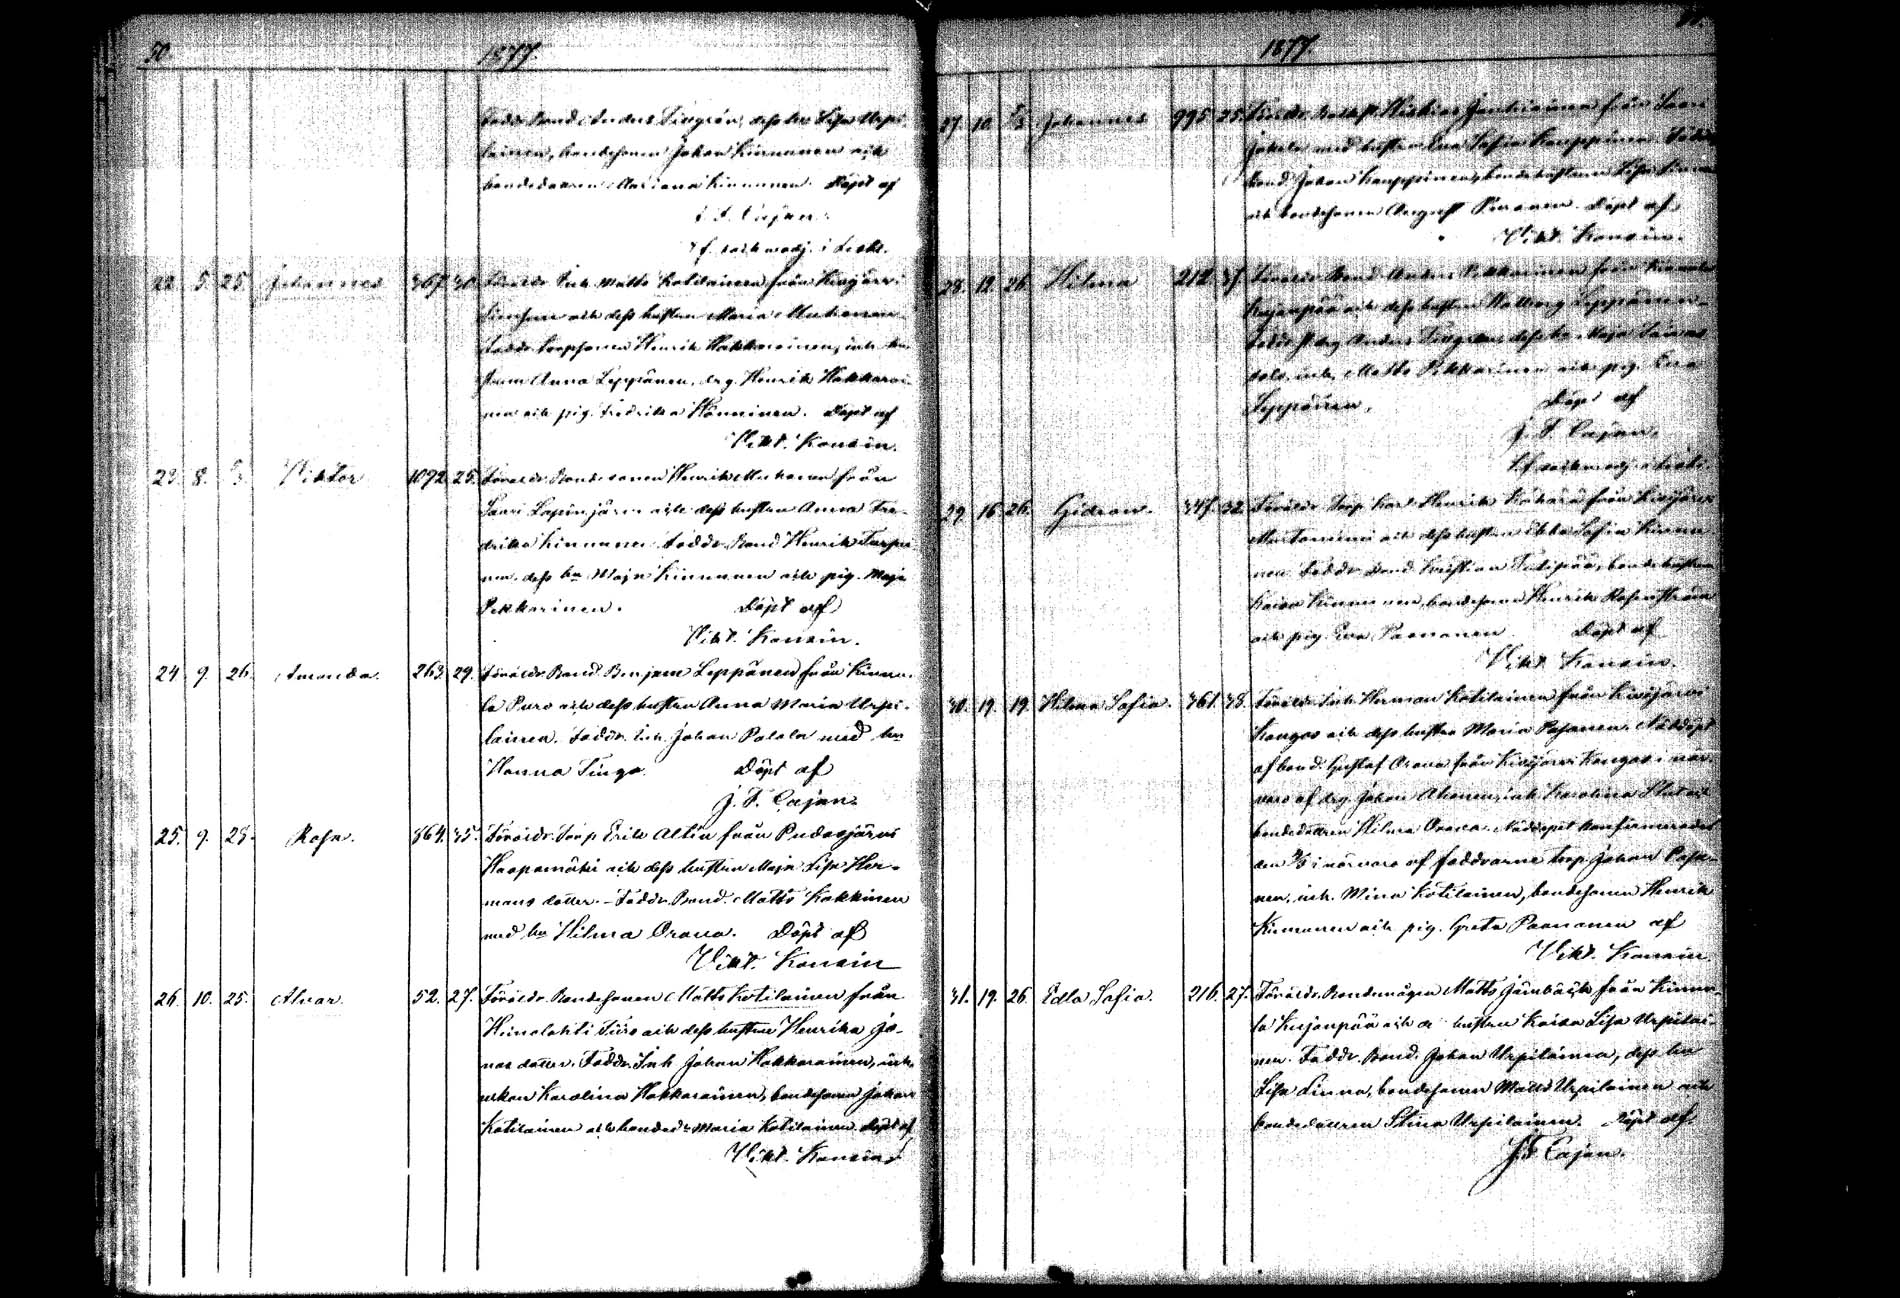 50.
1877.
Faddr. Bond. Anders Tiugrén, dess hu Lisa Urpi-
lainen, bondesonen Johan Kinnunen och
bondedottren Mariana Kinnunen. Döpt af
J. F. Cajan.
22. 5. 25. Johannes 367. 30. Föräldr. Inh. Matts Kotilainen från Kivijärvi
och dess hustru Maria Muhonen.
Faddr. Torpsonen Henrik Hakkarainen, inh.
Anna Leppänen, drg. Henrik Hakkarai-
nen och pig. Fredrika Hänninen. Döpt af
Vikt. Konsin.
23. 8. Viktor 1092. 25. Föräldr. Bondesonen Henrik Muhonen från
Saari Lapinjärvi och dess hustru Anna Fre-
drika Kinnunen. Faddr. Bond. Henrik Turpei-
nen, dess hu Maja Kinnunen och pig. Maja
Pekkarinen. Döpt af
Vikt. Konsin.
24. 9. 26. Amanda. 263. 29. Föräldr. Bond. Benjam Leppänen från Kinnu-
la Puro och dess hustru Anna Maria Urpi-
lainen. Faddr. Inh. Johan Palola med hu
Hanna Tiuga. Döpt af
J. F. Cajan.
25. 9. 28. Rosa. 864. 35. Föräldr. Torp. Erik Altin från Pudasjärvi
Haapamäki och dess hustru Maja Lisa Her-
mans dotter. Faddr. Bond. Matts Kakkinen
med hu Hilma Orava. Döpt af
Vikt. Konsin
26. 10. 25. Alvar. 52. 27. Föräldr. Bondesonen Matts Kotilainen från
Heinolahti och dess hustru Henrika Jo-
nas dotter. Faddr. Inh. Johan Hakkarainen, inh.
enkan Karolina Hakkarainen, bondesonen Johan
Kotilainen och bonded. Maria Kotilainen. Döpt af
Vikt. Konsin
1877
27. 10. Johannes 995. 25. Föräldr. från Saari
med hustru Eva Sofia Kauppinen. Faddr.
Bond. Johan Kauppinen, bondehustrun Lisa
och bondesonen August Piironen. Döpt af
Vikt. Konsin.
28. 12. 26. Hilma 212. 37. Föräldr. Bond. Anders Pekkarinen från Kinnula
Kujanpää och dess hustru Walborg Leppänen.
Faddr. Anders dess hu Maja
inh. Matts Pekkarinen och pig. Eva
Leppänen. Döpt af
J. F. Cajan.
29. 16. 26. Gideon. 347. 32. Föräldr. Torp. Karl Henrik från Kivijärvi
och dess hustru Ebba Sofia Kinnu-
nen. Faddr. Bond. Kristian bondehustrun
Kaisa Kinnunen, bondesonen Henrik Rosenström
och pig. Eva Paananen. Döpt af
Vikt. Konsin.
30. 19. 19. Hilma Sofia. 361. 38. Föräldr. Inh. Herman Kotilainen från Kivijärvi
Kangas och dess hustru Maria Pasanen. Nöddöpt
af bond. Gustaf Orava från Kivijärvi Kangas i när-
varo af drg. Johan Ahonen, inh. Karolina och
bondedottren Hilma Orava. Nöddopet konfirmerades
den i närvaro af faddrarne torp. Johan Pasa-
nen, inh. Mina Kotilainen, bondesonen Henrik
Kinnunen och pig. Greta Paananen af
Vikt. Konsin.
31. 19. 26. Edla Sofia. 216. 27. Föräldr. Bondemågen Matts Jämbäck från Kinnu-
la Kujanpää och d: hustru Kaisa Lisa Urpilai-
nen. Faddr. Bond. Johan Urpilainen, dess hu
Lisa Linna, bondesonen Matts Urpilainen och
bondedottren Stina Urpilainen. Döpt af
J. F. Cajan.